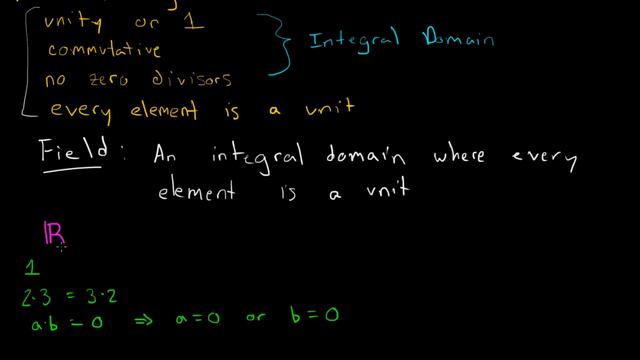 unity or 1
commutative
no zero divisors
Integral Domain
every element is a unit
Field: An integral domain where every
element is a unit
ℝ
1
2·3 = 3·2
a·b = 0 ⇒ a=0 or b=0